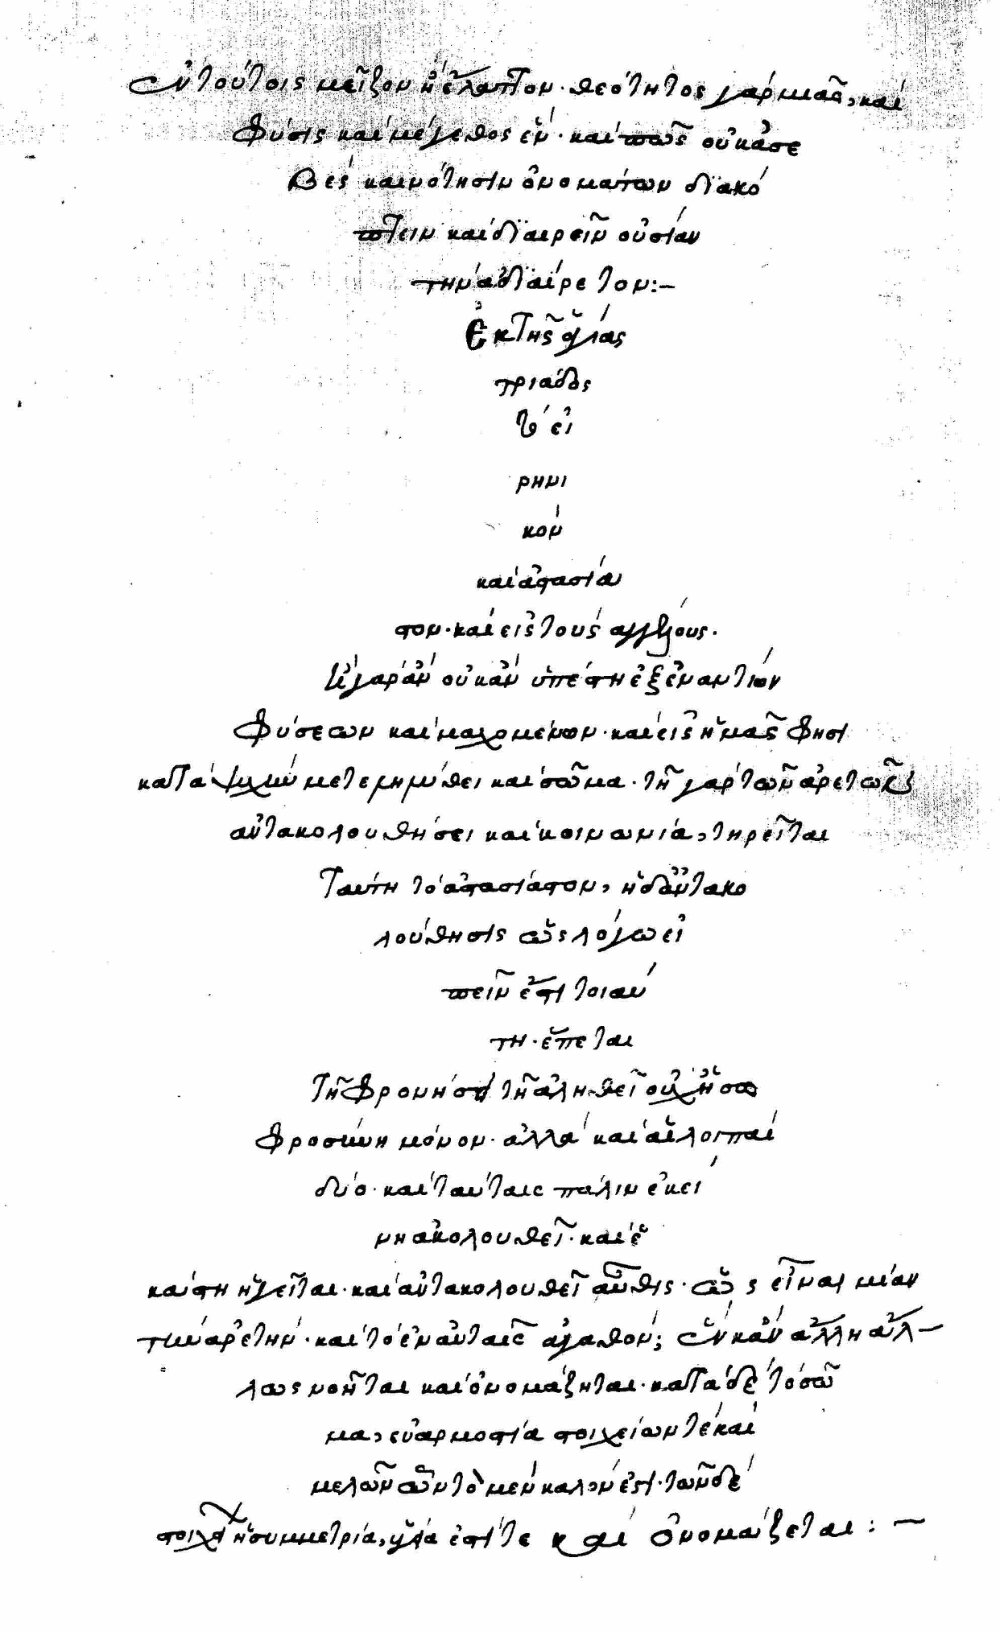 ἐν τούτοις μεῖζον ἢ ἔλαττον· θεότητος γὰρ μιᾶς, καὶ
φύσις καὶ μέγεθος ἕν· καὶ πῶς οὐκ ἀσε
βὲς καινότησιν ὀνομάτων διακό
πτειν καὶ διαιρεῖν οὐσίαν
τὴν ἀδιαίρετον:–
Ἐκ τῆς ἁγίας
τριάδος
τὸ εἰ
ρηνι
κὸν
καὶ ἀστασία
στον· καὶ εἰς τοὺς ἀγγέλους·
οὐ γὰρ ἂν οὐκ ἂν ὑπέστη ἐξ ἐναντίων
φύσεων καὶ μαχομένων· καὶ εἰς ἡμᾶς φησὶ
κατὰ ψυχὴν μετενηνέχθει καὶ σῶμα· τῇ γὰρ τῶν ἀρετῶν
ἀντακολουθήσει καὶ κοινωνία, τηρεῖται
ταύτη τὸ ἀστασίαστον, ἡ δ' ἀντακο
λούθησις ὡς λόγω εἰ
πεῖν ἐστὶ τοιαύ
τη· ἕπεται
τῇ φρονήσει τῇ ἀληθεῖ οὐχ ἡ σω
φροσύνη μόνον· ἀλλὰ καὶ αἱ λοιπαὶ
δύο· καὶ ταύταις πάλιν ἐκεί
νη ἀκολουθεῖ· καὶ ἑ
κάστη ἡγεῖται· καὶ ἀντακολουθεῖ αὖθις· ὡς εἶναι μίαν
τὴν ἀρετήν· καὶ τὸ ἐν αὐταῖς ἀγαθόν; ἓν κἂν ἄλλη ἄλ–
λως νοῆται καὶ ὀνομάζηται· κατὰ δὲ τὸ σῶ
μα, εὐαρμοστία στοιχείων τὲ καὶ
μελῶν ὧν τὸ μὲν καλὸν ἐστὶ· τῶν δὲ
στοιχείων ἡ συμμετρία, ὑγεία ἐστί τε καὶ ὀνομάζεται:–